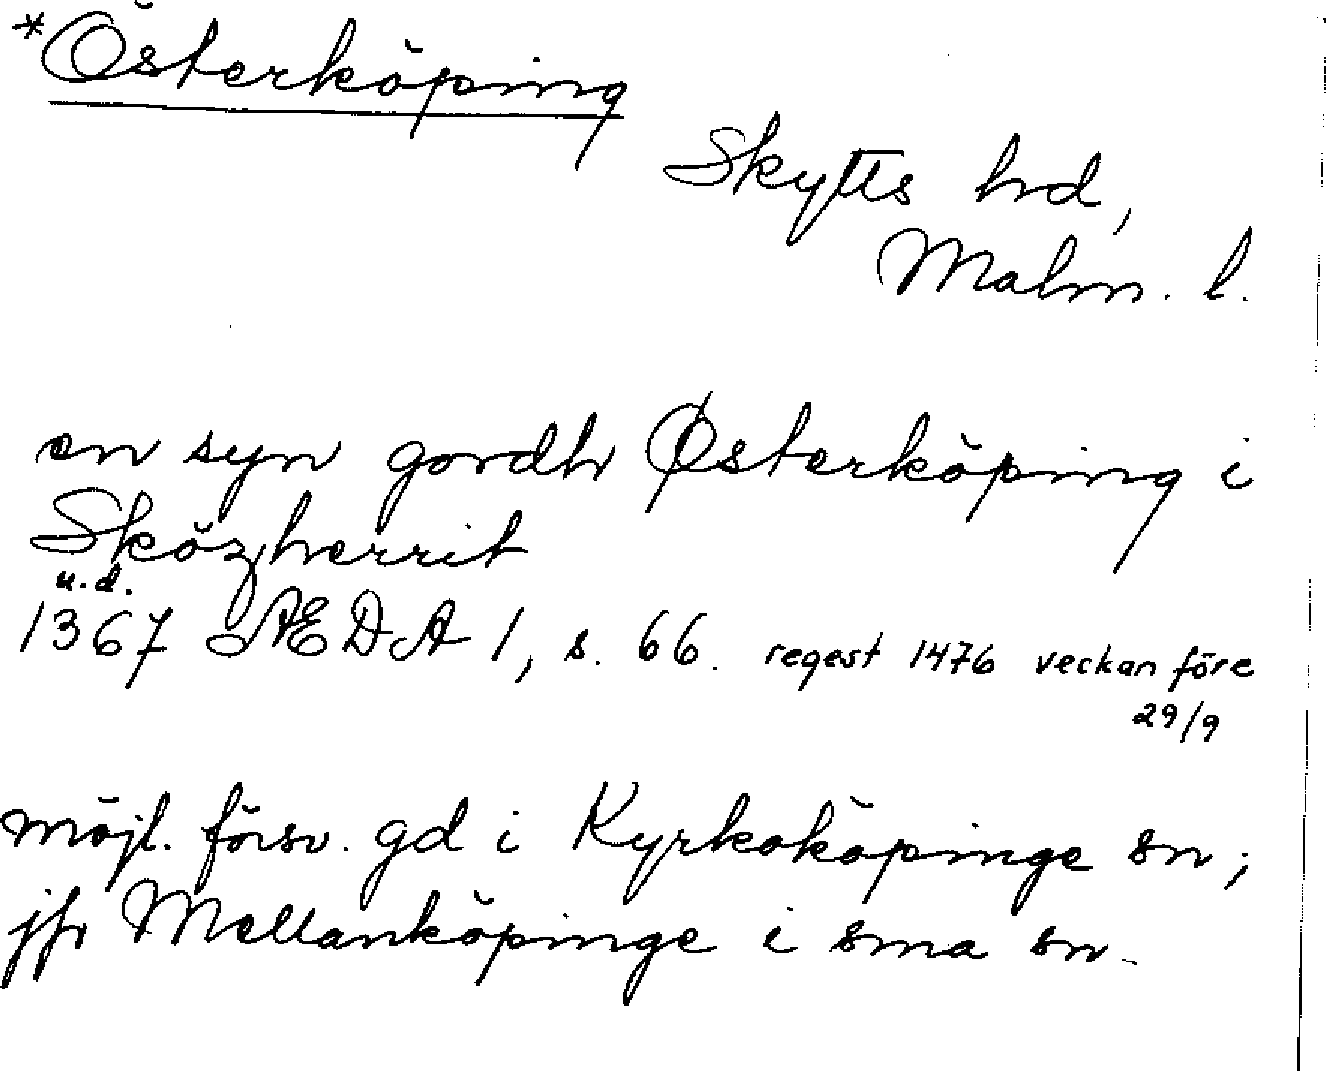 *Österköping
Skytts hd,
Malm. l.
en syn gordh Østerköping i
Sközherrit
u.d.
1367 ÆDA 1, s. 66. regest 1476 veckan före
29/9
möjl. försv. gd i Kyrkoköpinge sn;
jfr Mellanköpinge i sma sn.